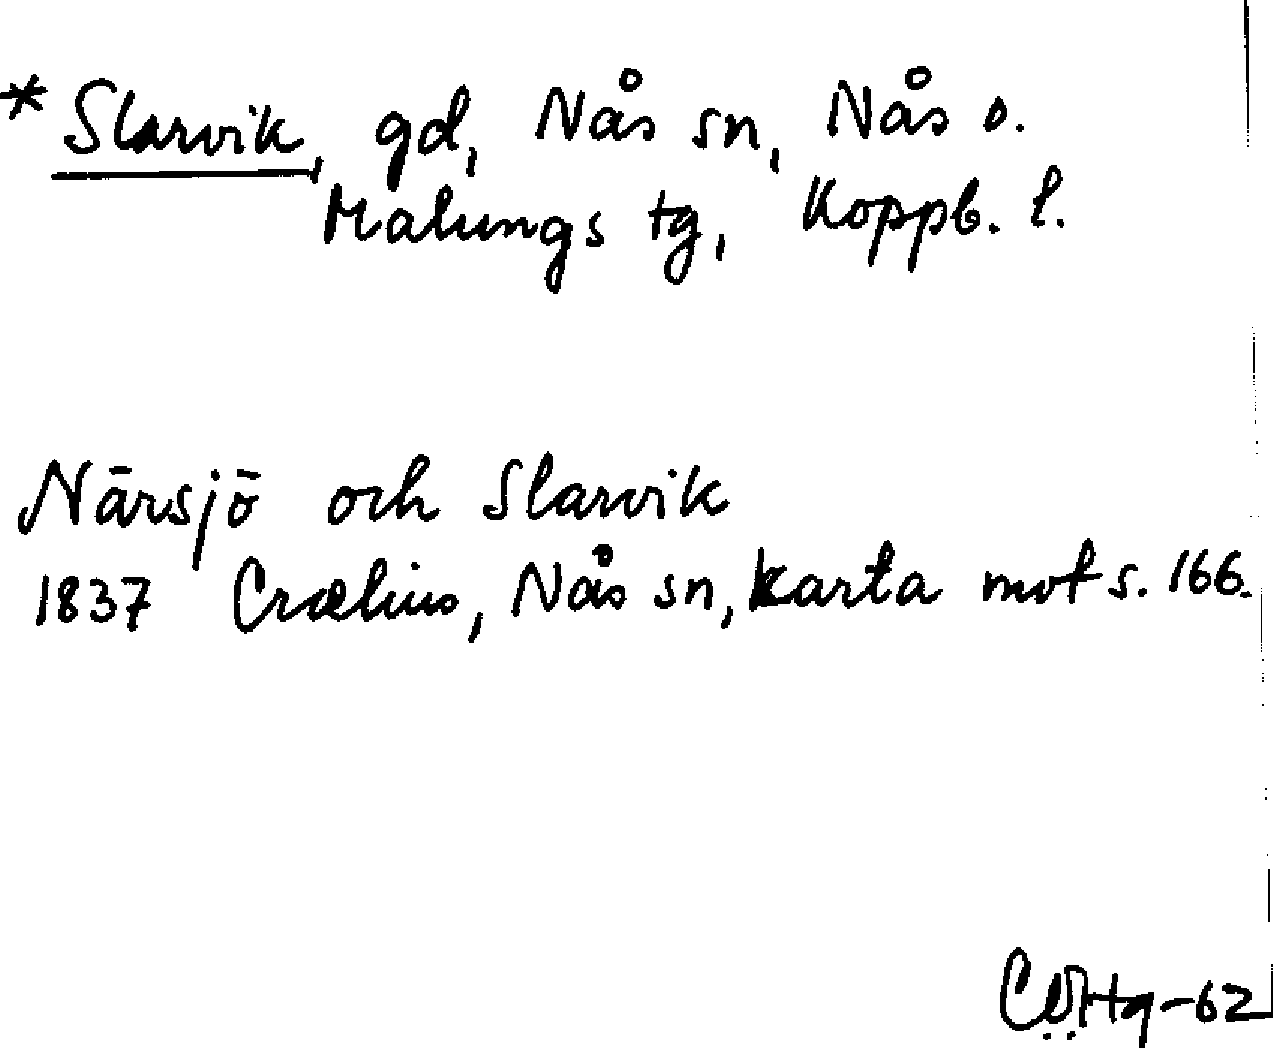 * Slarvik, gd, Nås sn, Nås o.
Malungs tg, Koppb. l.
Närsjö och Slarvik
1837 Crælius, Nås sn, karta mot s. 166.
-62